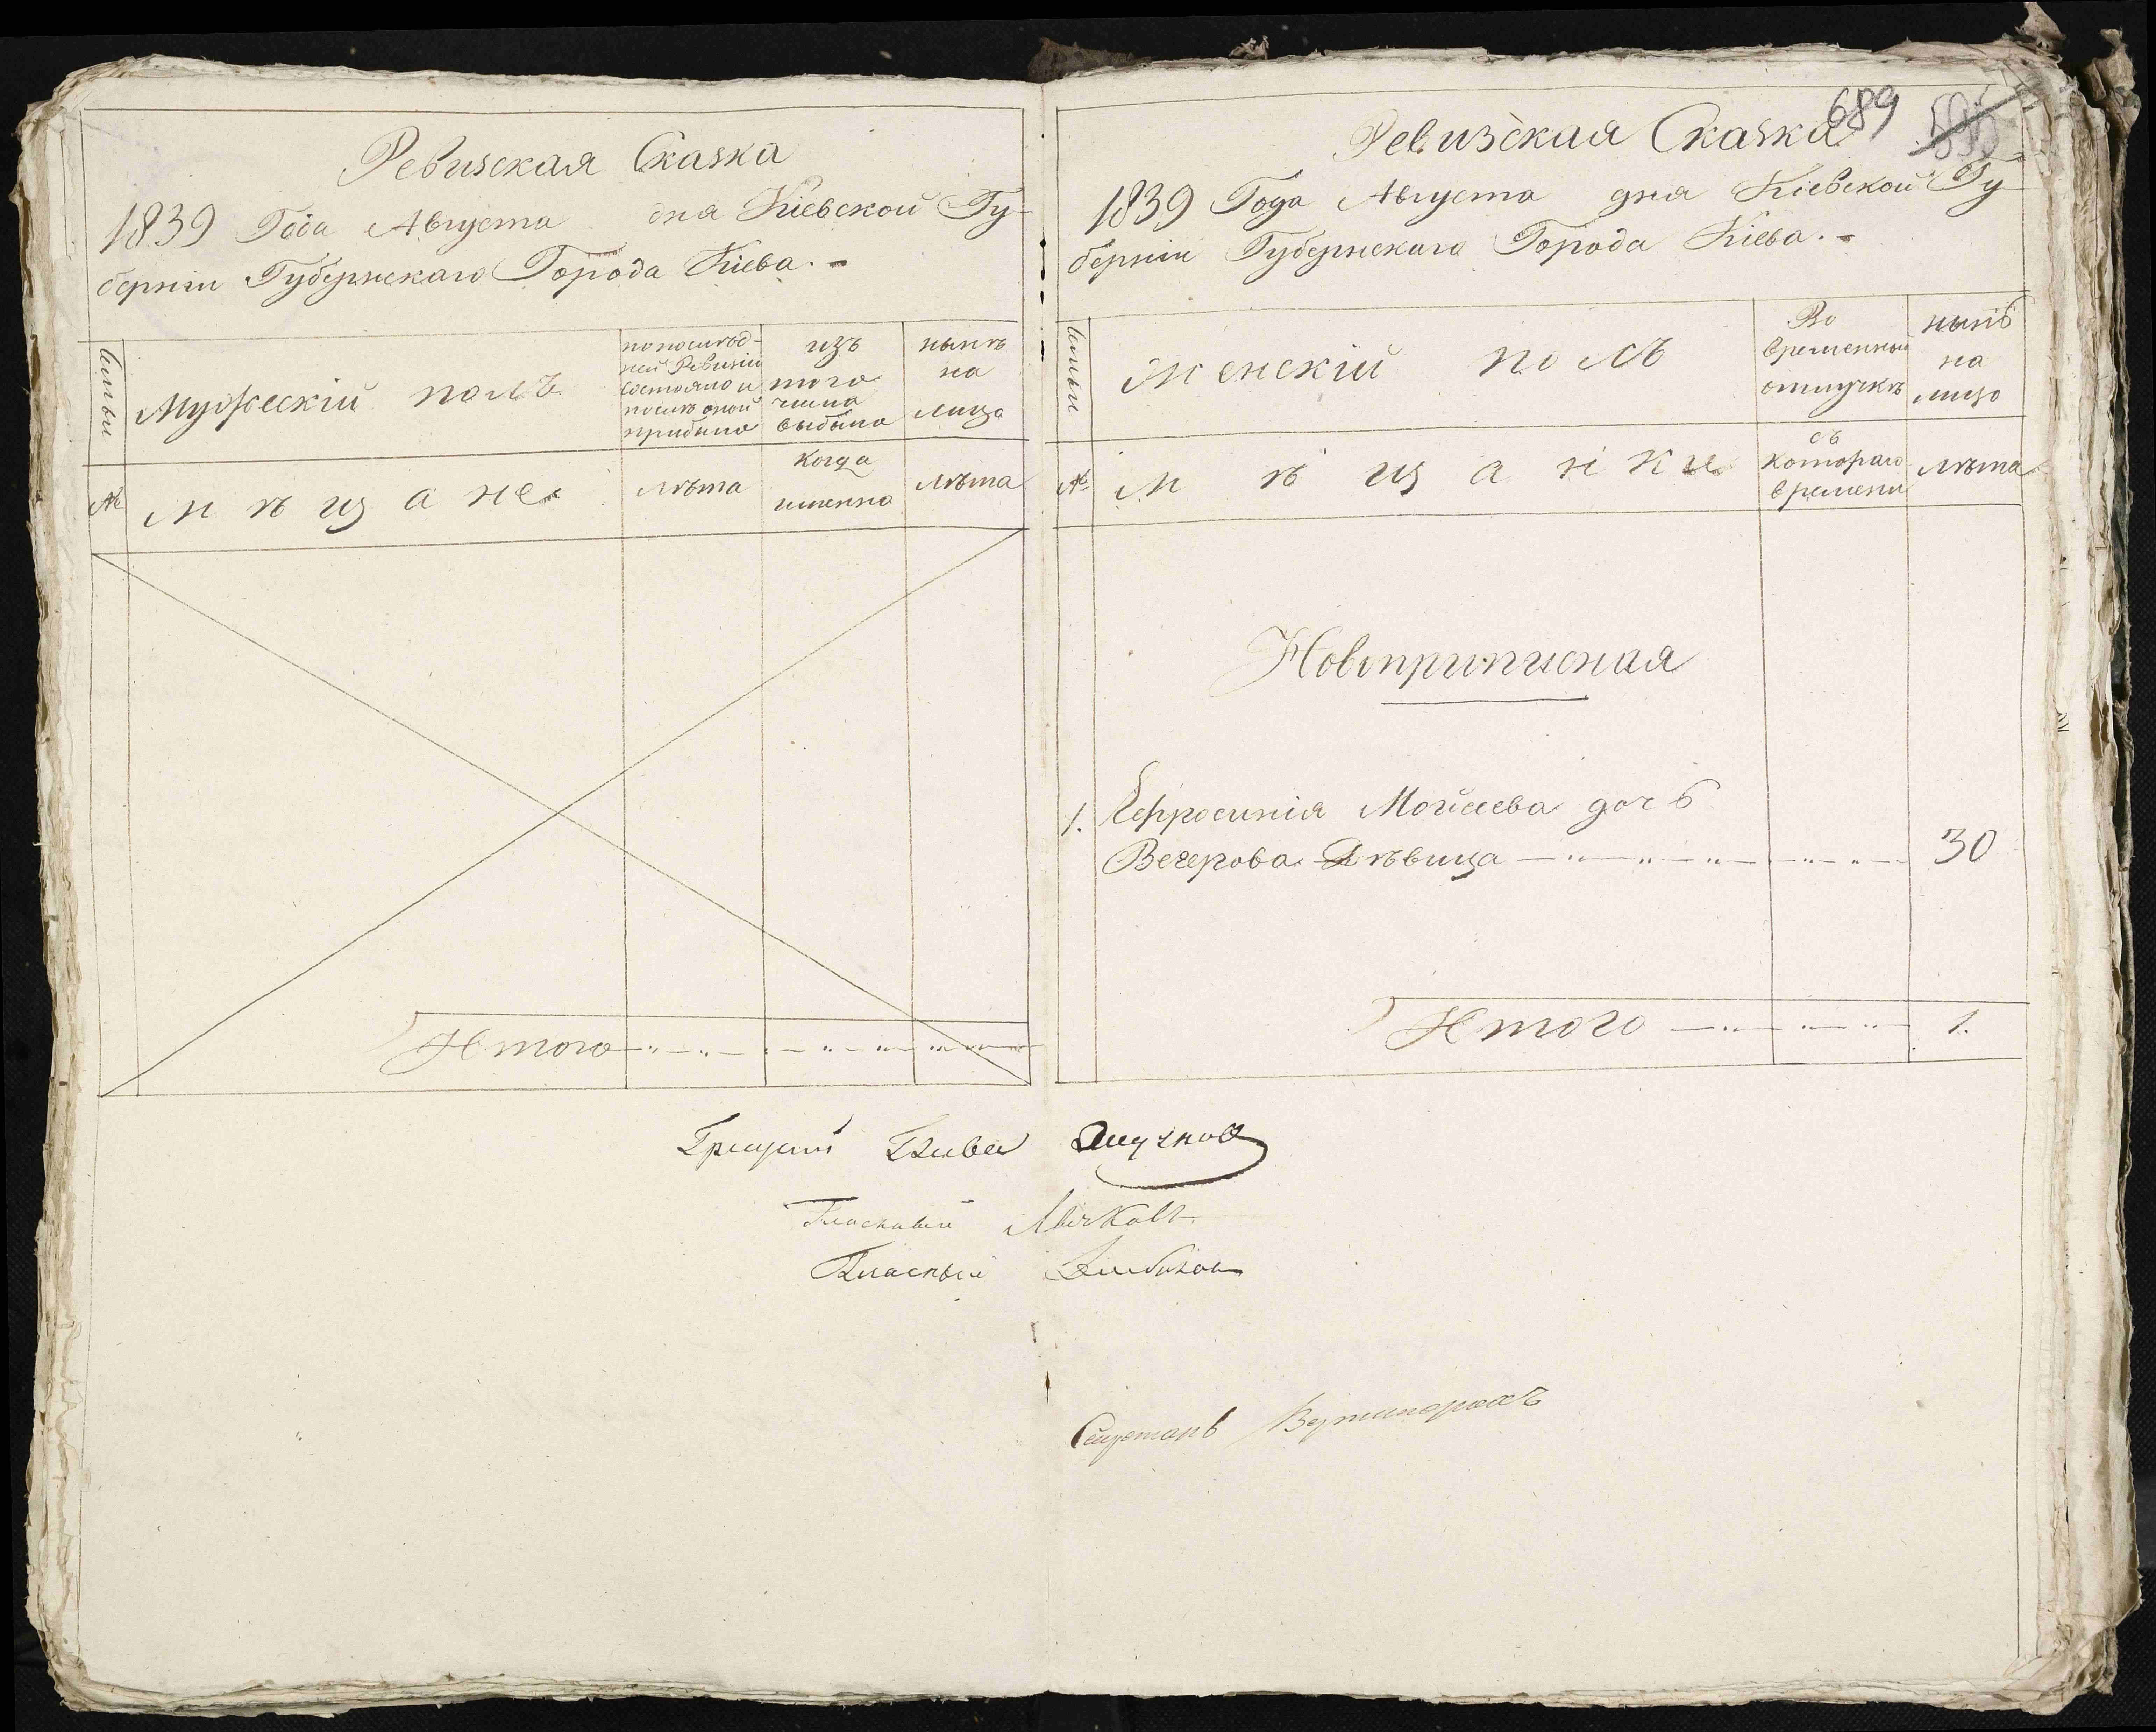 Ревизская Сказка
1839 Года Августа дня Кіевской Гу-
берніи Губернскаго Города Кіева.
Семьи
Мужескій полъ
по послѣд-
ней Ревизіи
состояло и
послѣ оной
прибыло
изъ
того
числа
выбыло
нынѣ
на
лицо
№
мѣщане
лѣта
когда
именно
лѣта
Итого
689
Ревизская Сказка
1839 Года Августа дня Кіевской Гу-
берніи Губернскаго Города Кіева.
Семьи
Женскій полъ
Во
временной
отлучкѣ
нынѣ
на
лицо
№
мѣщанки
съ
котораго
времени
лѣта
Новоприписная
1. Ефросинія Мойсеева дочь
Вечерова Дѣвица 30
Итого 1.
Градскій Глава
Гласный
Гласный
Секретарь